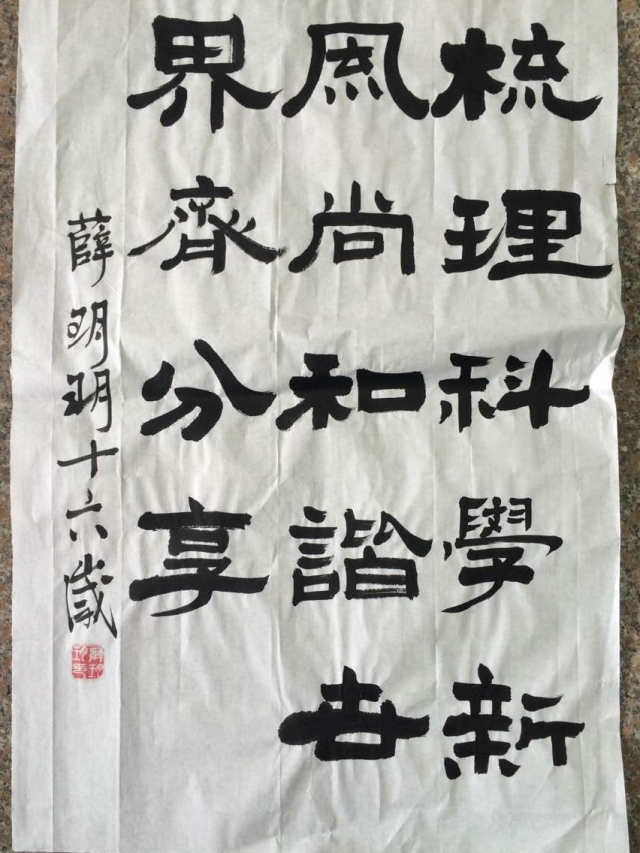 梳理科學新
風尚和諧世
界齊分享
薛玥玥十六歲